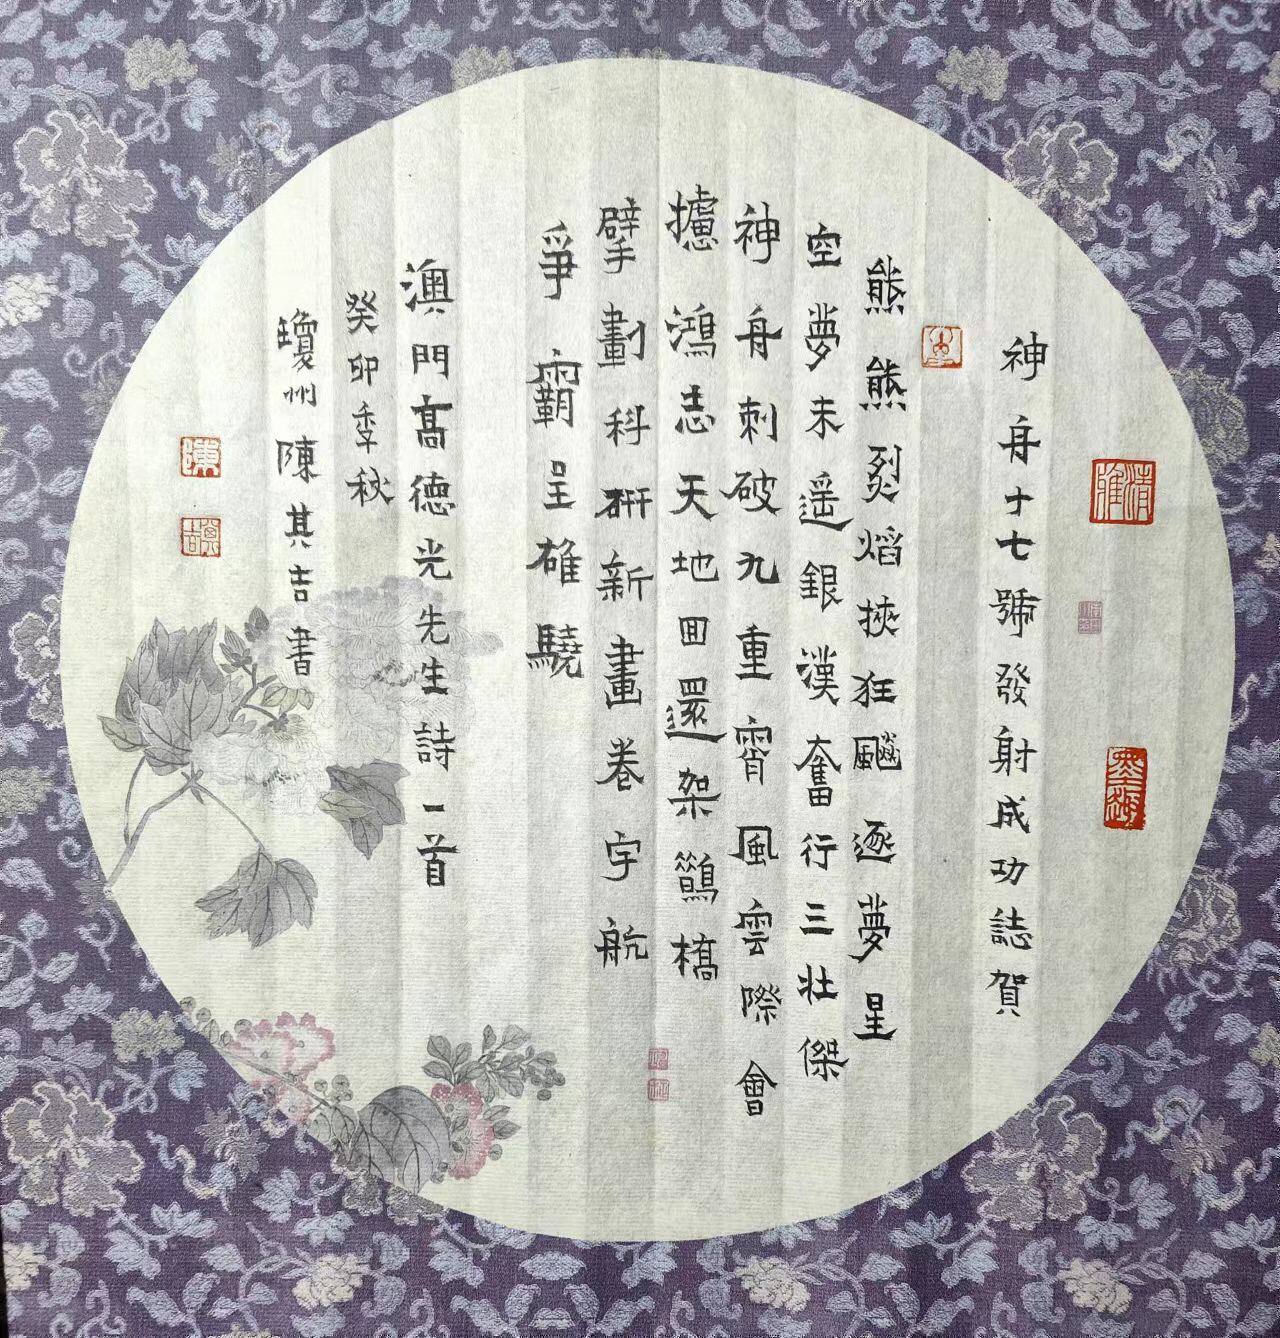 神舟十七號發射成功誌賀
熊熊烈焰挾狂飈逐夢星
空夢未遥銀漢奮行三壯傑
神舟刺破九重霄風雲際會
攄鴻志天地回還架鵲橋
擘劃科研新畫卷宇航
爭霸呈雄驍
澳門高德光先生詩一首
癸卯季秋
瓊州陳其吉書
陳